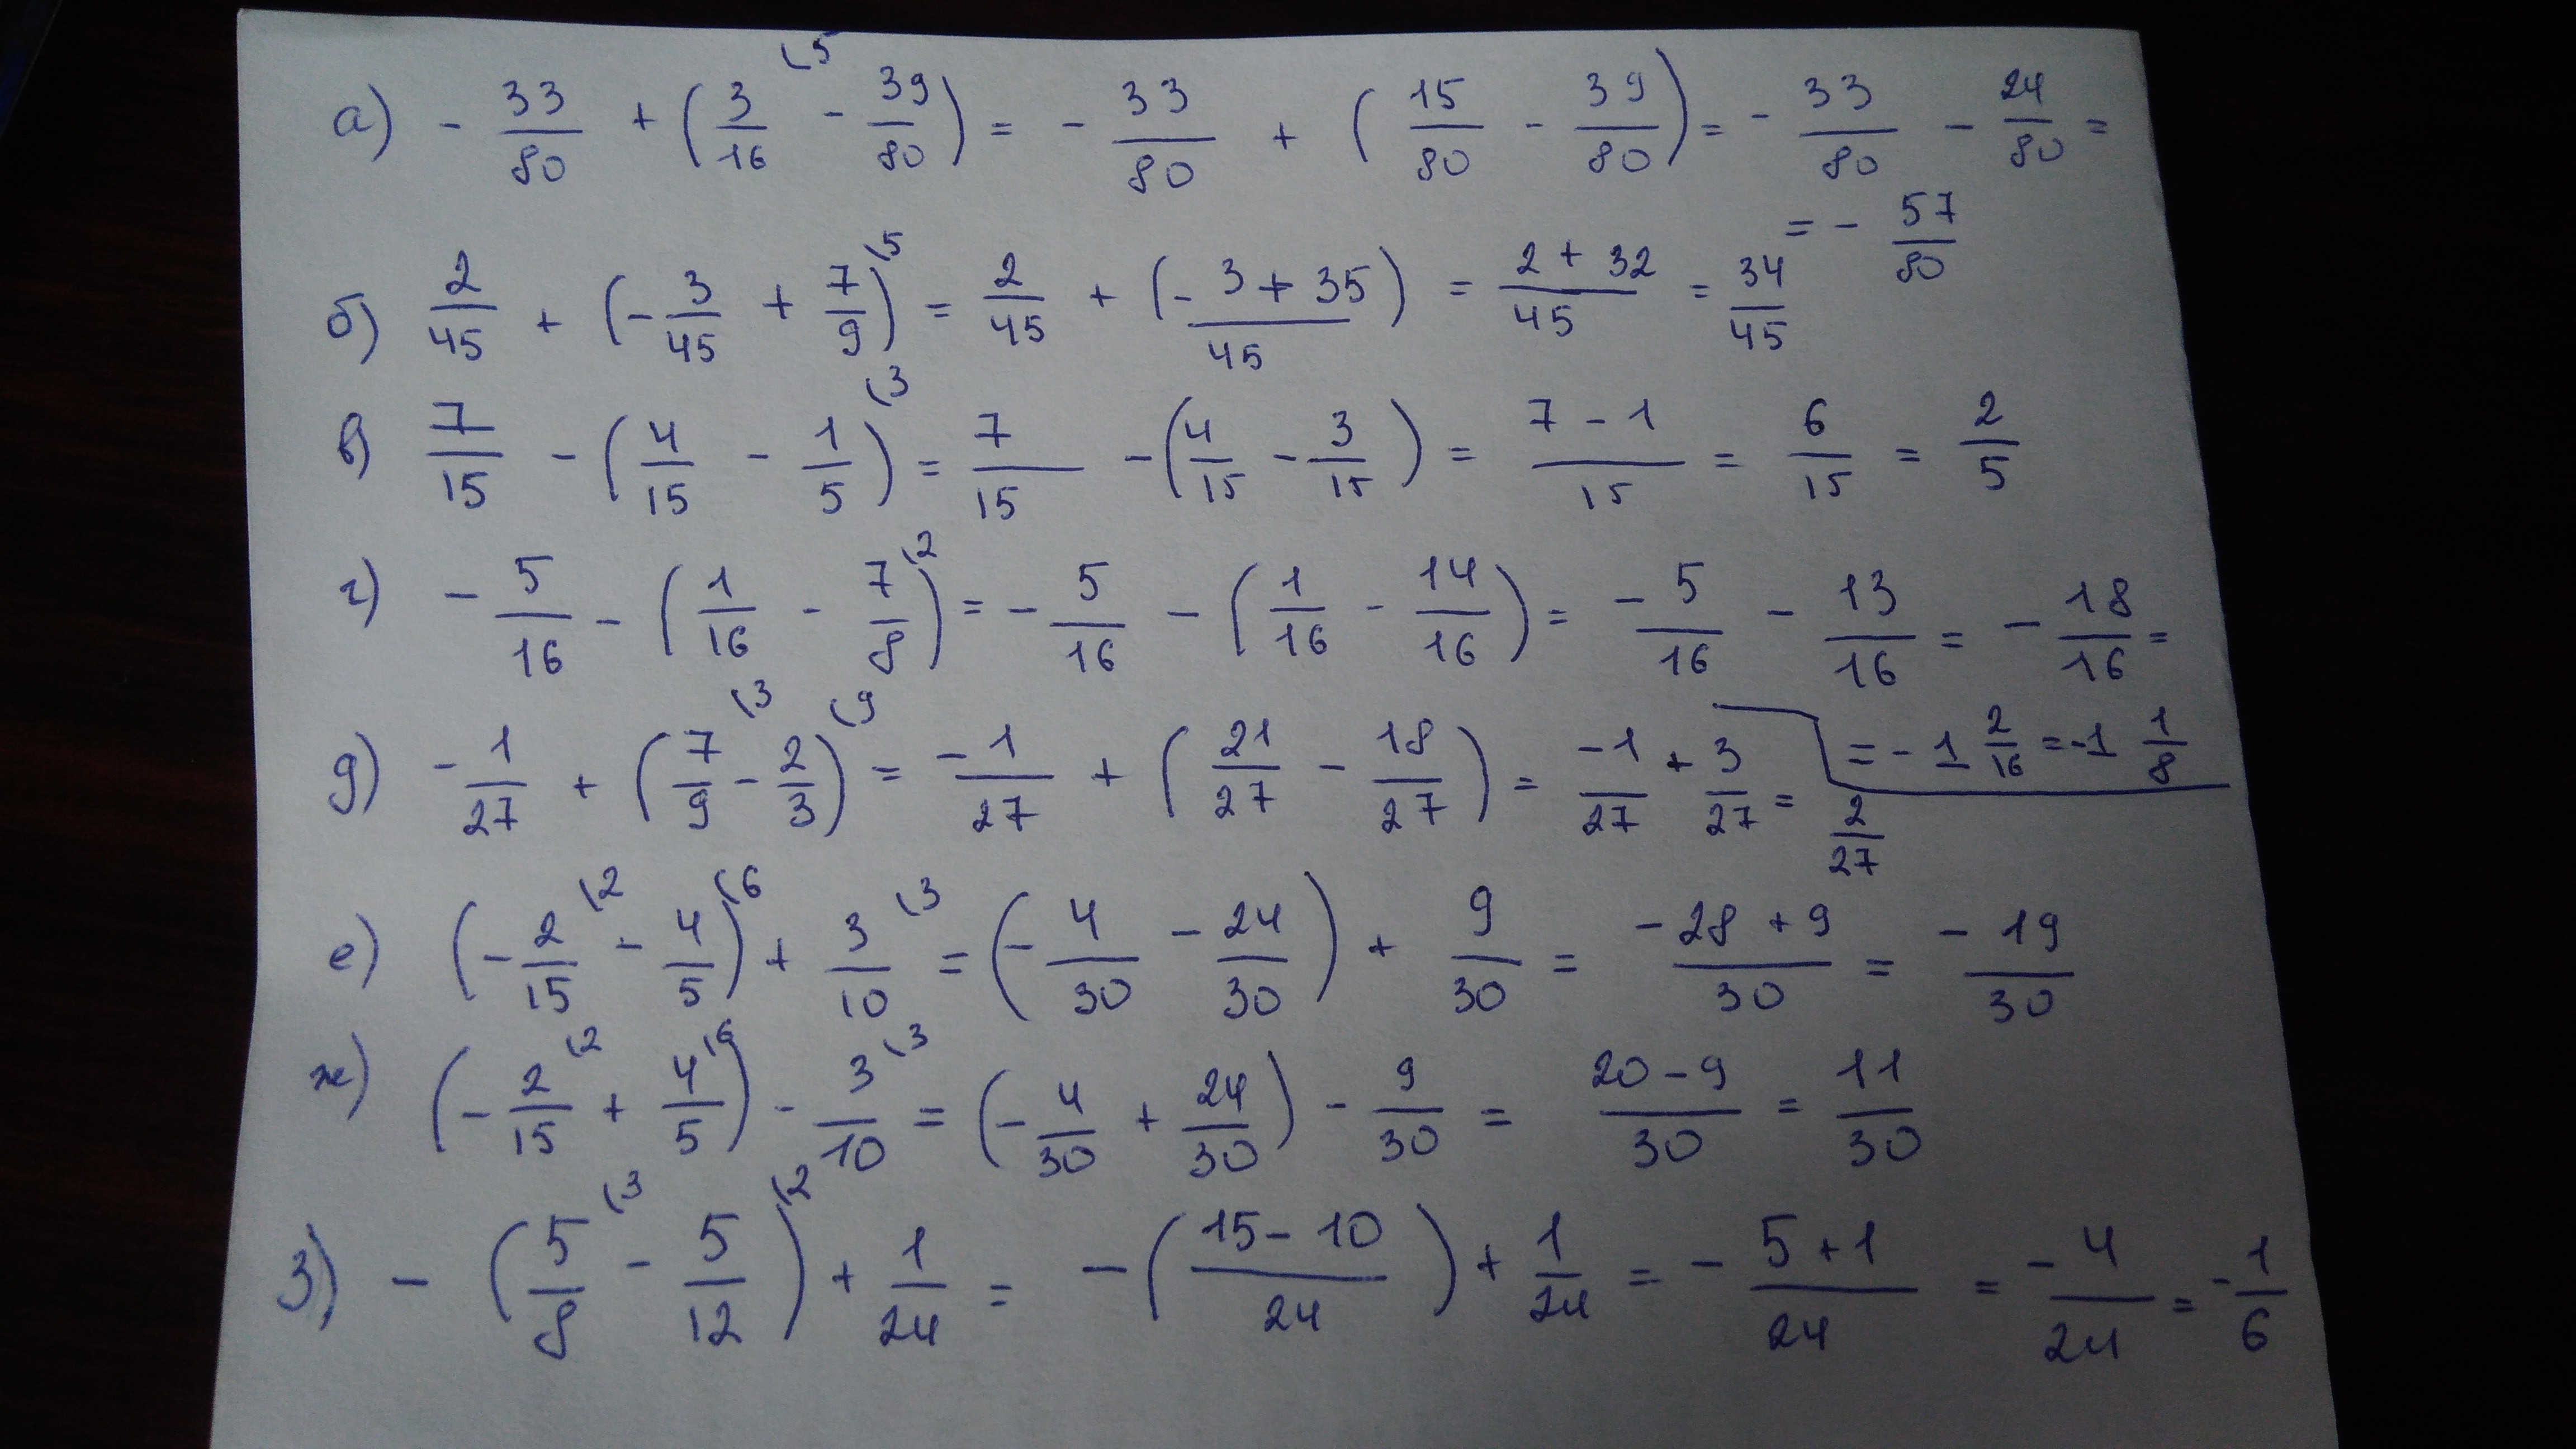 а) - 33/80 + (3/16 (5 - 39/80) = - 33/80 + (15/80 - 39/80) = - 33/80 - 24/80 =
= - 57/80
б) 2/45 + (- 3/45 + 7/9) (5 = 2/45 + (- 3 + 35)/45 = 2 + 32/45 = 34/45
в) 7/15 - (4/15 - 1/5) (3 = 7/15 - (4/15 - 3/15) = 7 - 1/15 = 6/15 = 2/5
г) - 5/16 - (1/16 - 7/8) (2 = - 5/16 - (1/16 - 14/16) = - 5/16 - 13/16 = - 18/16 =
= - 1 2/16 = -1 1/8
д) - 1/27 + (7/9 (3 - 2/3) (9 = - 1/27 + (21/27 - 18/27) = -1/27 + 3/27 = 2/27
е) (- 2/15 (2 - 4/5) (6 + 3/10 (3 = (- 4/30 - 24/30) + 9/30 = - 28 + 9/30 = - 19/30
ж) (- 2/15 (2 + 4/5) (6 - 3/10 (3 = (- 4/30 + 24/30) - 9/30 = 20 - 9/30 = 11/30
з) - (5/8 (3 - 5/12) (2 + 1/24 = - (15 - 10/24) + 1/24 = - 5 + 1/24 = - 4/24 = - 1/6